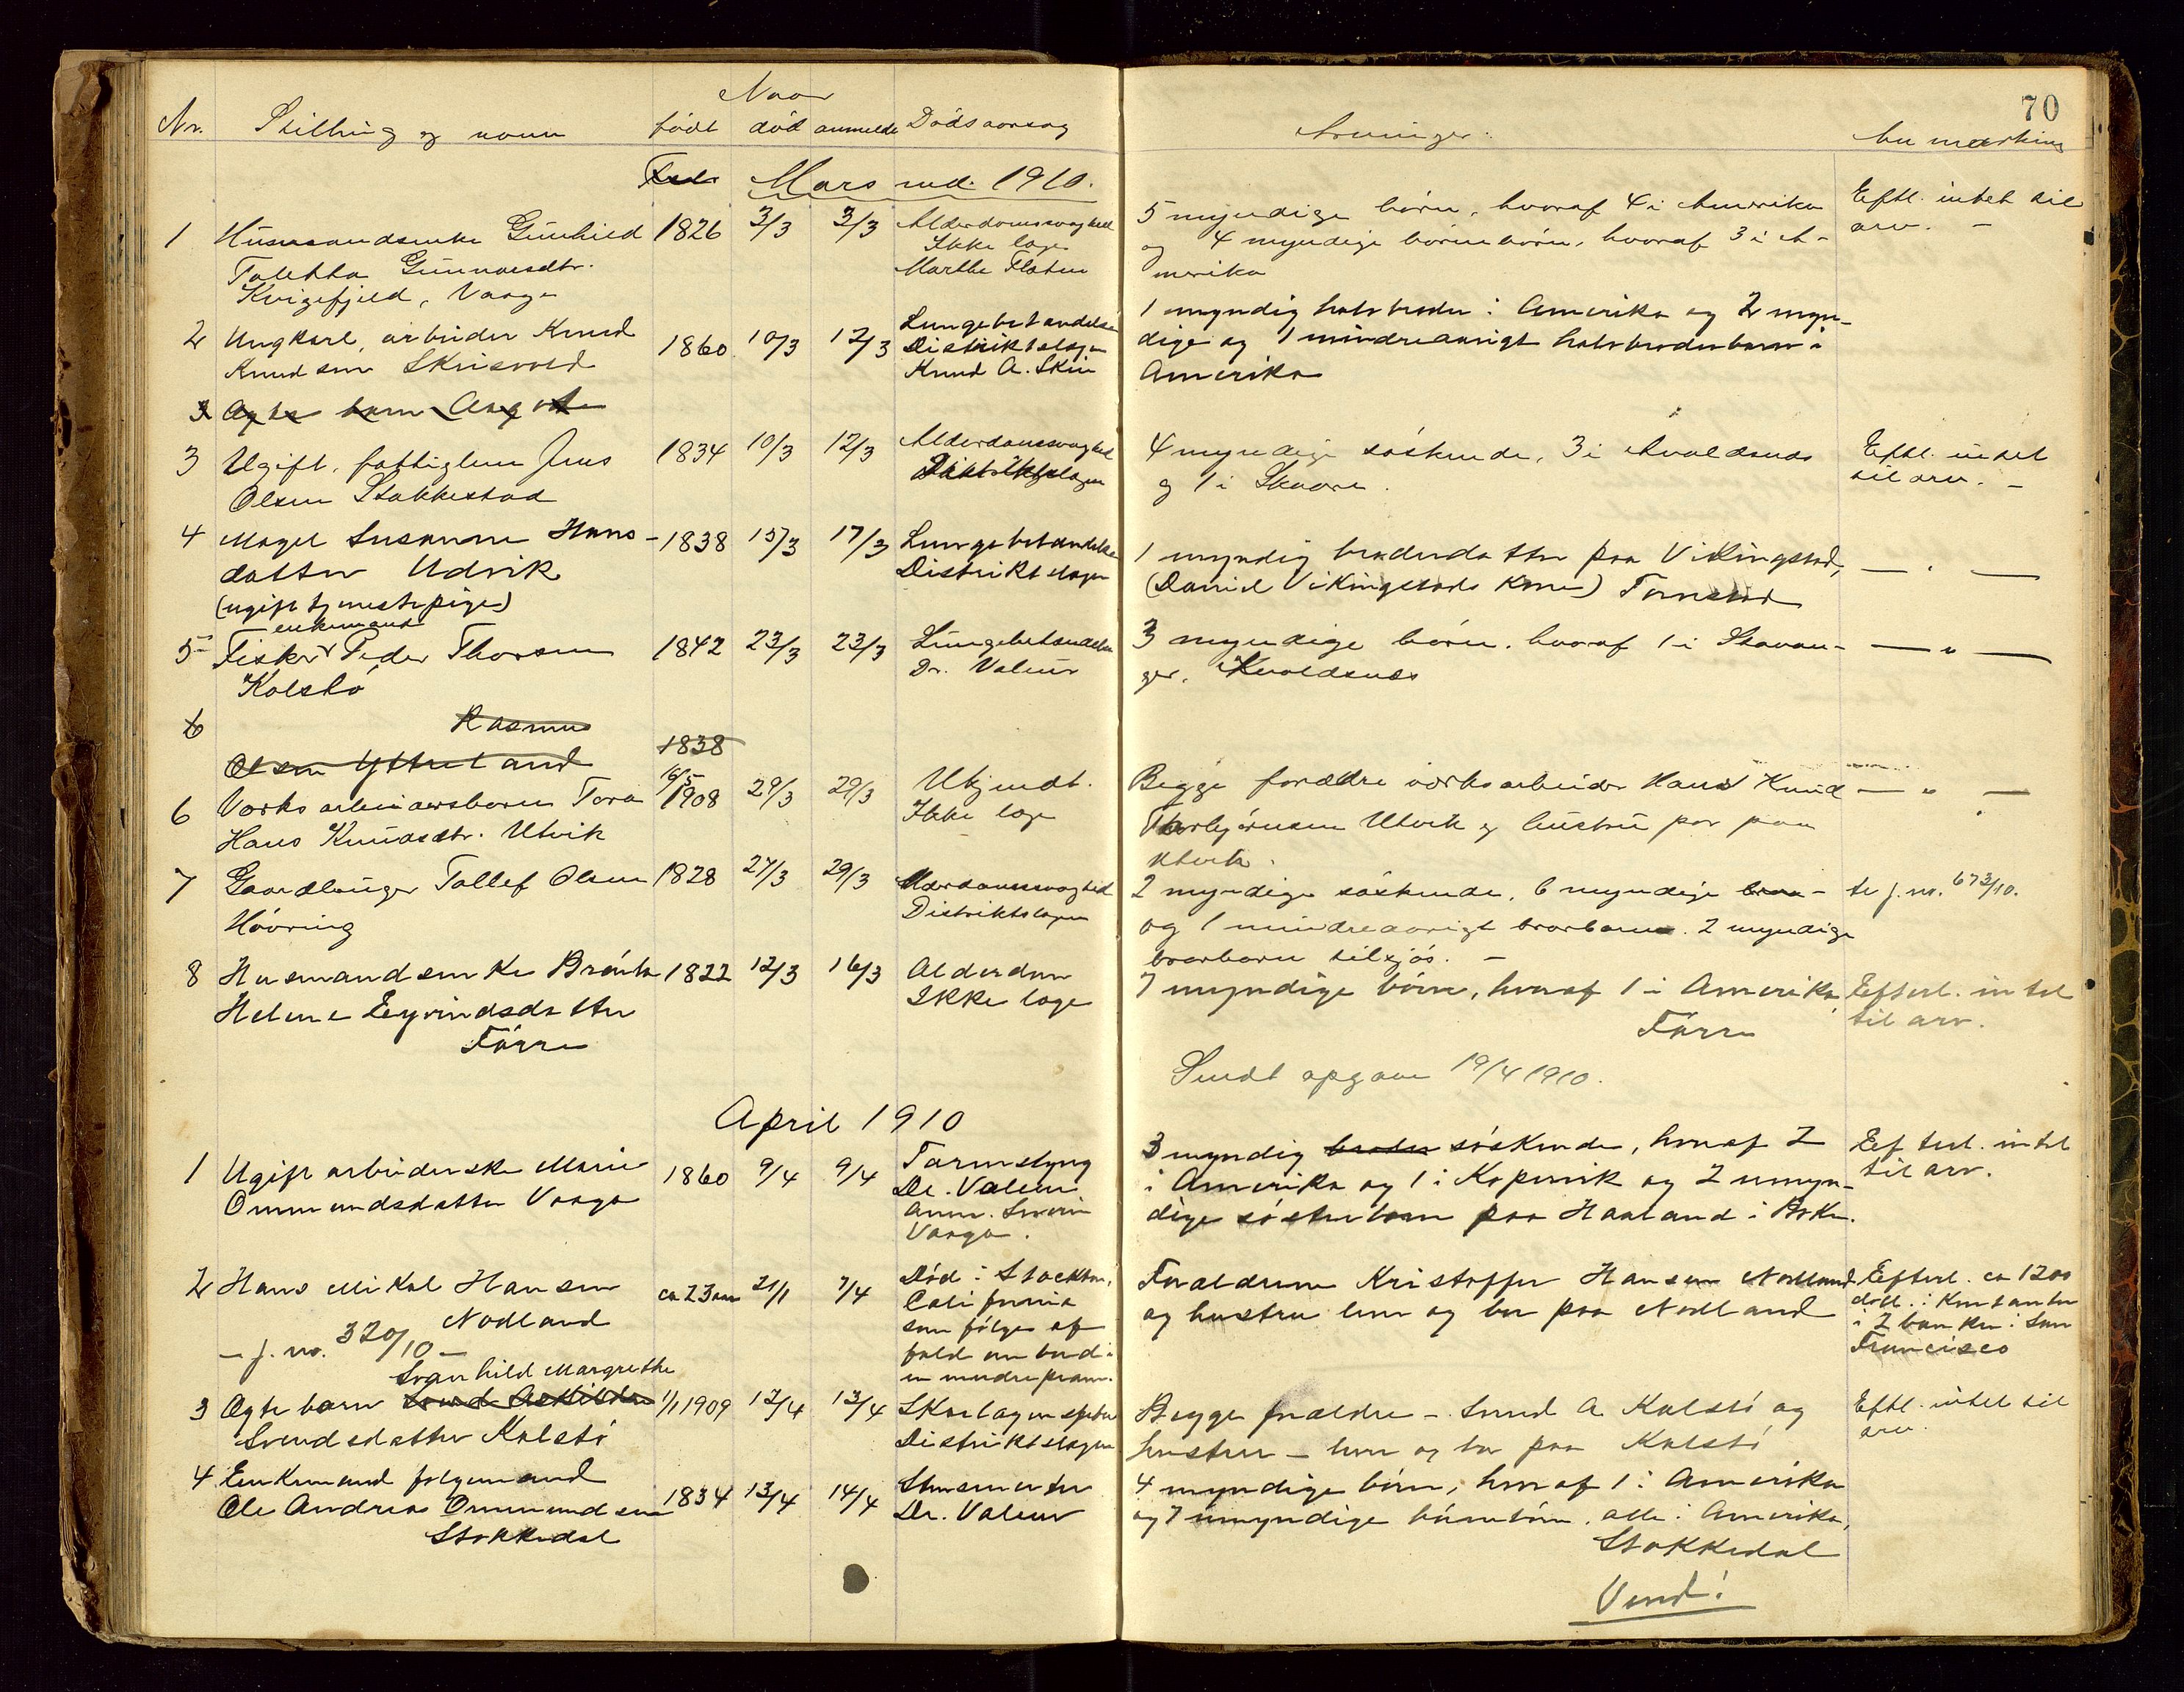 70
Naar
Nr. Stilling og navn født død anmeldt Dödsaarsag
Arvinger: Anmærkning
Mars md. 1910.
1 Husmandsenke Gunhild 1826 3/3 3/3 Alderdomssvaghed
Taletta Gunnarsdtr. Ikke læge
Kvigefjeld, Vaage Marthe Flaten
5 myndige børn, hvoraf 4 i Amerika
og 4 myndige börnebörn, hvoraf 3 i A-
merika
Eftl. intet til
arv. —
2 Ungkarl, arbeider Knud 1860 10/3 12/3 Lungebetændelse
Knudsen Skrisvold Distriktslægen
Knud A. Skin
1 myndig halvbroder i Amerika og 2 myn-
dige og 1 mindreaarigt halvbroderbarn i
Amerika
3 Ægte barn Aagot
3 Ugift, fattiglem Jens 1834 10/3 12/3 Alderdomssvaghed
Olsen Stakkestad Distriktslægen
4 myndige söskende, 3 i Avaldsnes
og 1 i Skaare.
Eftl. intet
til arv. —
4 Susanne Hans- 1838 15/3 17/3 Lungebetændelse
datter Udvik Distriktslægen
(ugift tjenestepige)
1 myndig broderdatter paa Vikingstad,
(Daniel Vikingstads kone) Tornstad
— " —
5 Fisker enkemand Peder Thorsen 1842 23/3 23/3 Lungebetændelse
Kolstö Dr. Valeur
3 myndige börn, hvoraf 1 i Stavan-
ger. Avaldsnes
— " —
6 Rasmus
Olsen Yttreland 1838
6 Værksarbeidersbarn Tora 16/5 1908 29/3 29/3 Ukjendt.
Hans Knudsdtr. Utvik Ikke læge
Begge forældre værksarbeider Hans Knud
Thorbjörnsen Utvik og hustru bor paa
Utvik.
— " —
7 Gaardbruger Tollef Olsen 1828 27/3 29/3 Alderdomssvaghed
Hövring Distriktslægen
2 myndige söskende, 6 myndige bror-
og 1 mindreaarigt brorbarn. 2 myndige
brorbarn tilsjös. —
se j. nr. 673/10.
8 Husmandsenke Brönla 1822 12/3 16/3 Alderdom
Helene Eyvindsdatter Ikke læge
Förre
7 myndige börn, hvoraf 1 i Amerika,
Förre
Efterl. intet
til arv.
Sendt opgave 19/4 1910.
April 1910
1 Ugift arbeiderske Marie 1860 9/4 9/4 Tarmslyng
Ommundsdatter Vaage Dr. Valeur
anm. Sverin
Vaage.
3 myndig broder söskende, hvoraf 2
i Amerika og 1 i Kopervik og 2 umyn-
dige söstrebarn paa Haaland i Bokn.
Efterl. intet
til arv.
2 Hans Mikal Hansen ca 23 aar 21/1 7/4 Död i Stockton,
Nodland California
— j. nr. 320/10 — som fölge af
fald om bord i
en mudderpram.
Forældrene Kristoffer Hansen Nodland
og hustru lever og bor paa Nodland
Efterl. ca 1200
doll. i kontanter
i 2 banker i San
Francisco
Svanhild Margrethe
3 Ægte barn 1/1 1909 12/4 13/4 Skarlagensfeber
Svendsdatter Kolstö Distriktslægen
Begge forældre — Svend A Kolstö og
hustru — lever og bor paa Kolstö
Eftl. intet til
arv.
4 Enkemand folgemand
Ole Andreas Ommundsen 1834 13/4 14/4 Stensmerter
Stokkedal Dr. Valeur
4 myndige börn, hvoraf 1 i Amerika
og 7 umyndige börnebörn, alle i Amerika,
Stokkedal
Vend!